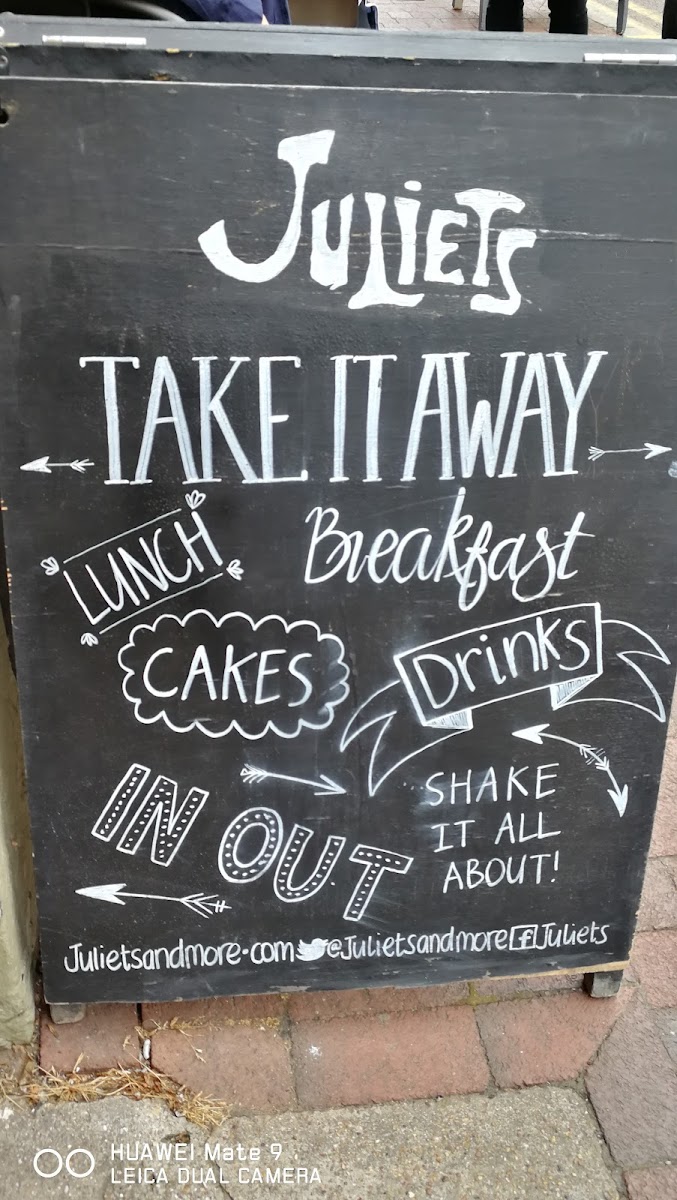 JULiETS
TAKE IT AWAY
LUNCH
Breakfast
CAKES
Drinks
IN OUT
SHAKE
IT ALL
ABOUT!
Julietsandmore.com @Julietsandmore f Juliets
HUAWEI Mate 9
LEICA DUAL CAMERA